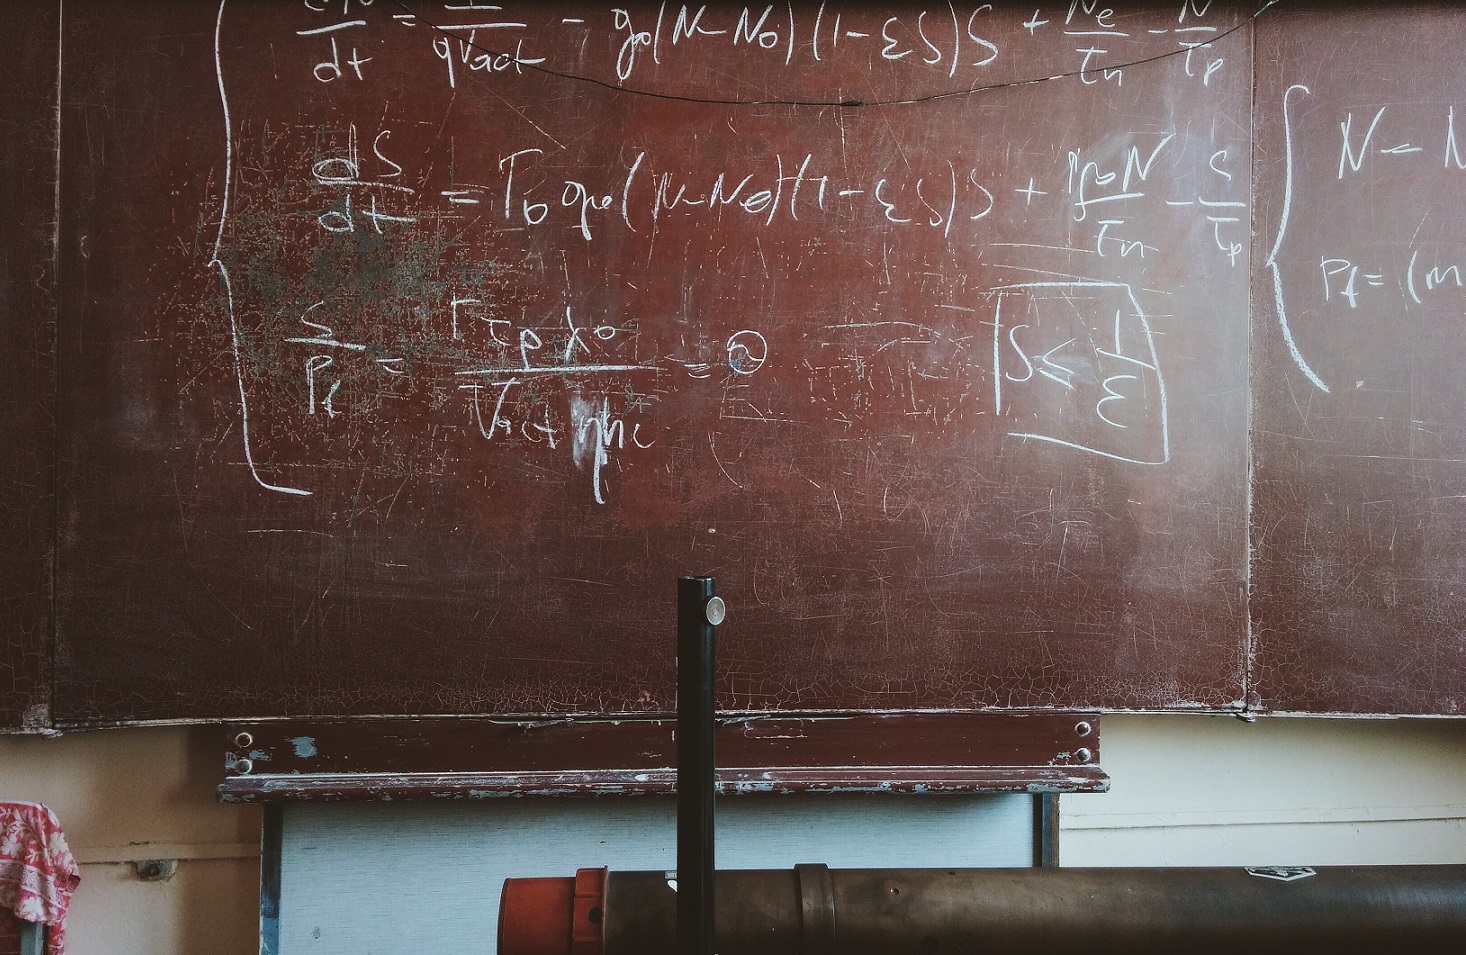 dN/dt = I/qVact - g₀(N-N₀)(1-εS)S + Nₑ/τₙ - N/τₚ
dS/dt = Γ₀g₀(N-N₀)(1-εS)S + N/τₙ - S/τₚ
S/Pf = Γτₚλ₀/Vact ηhc =
S ≤ 1/ε
N -
Pf = (m